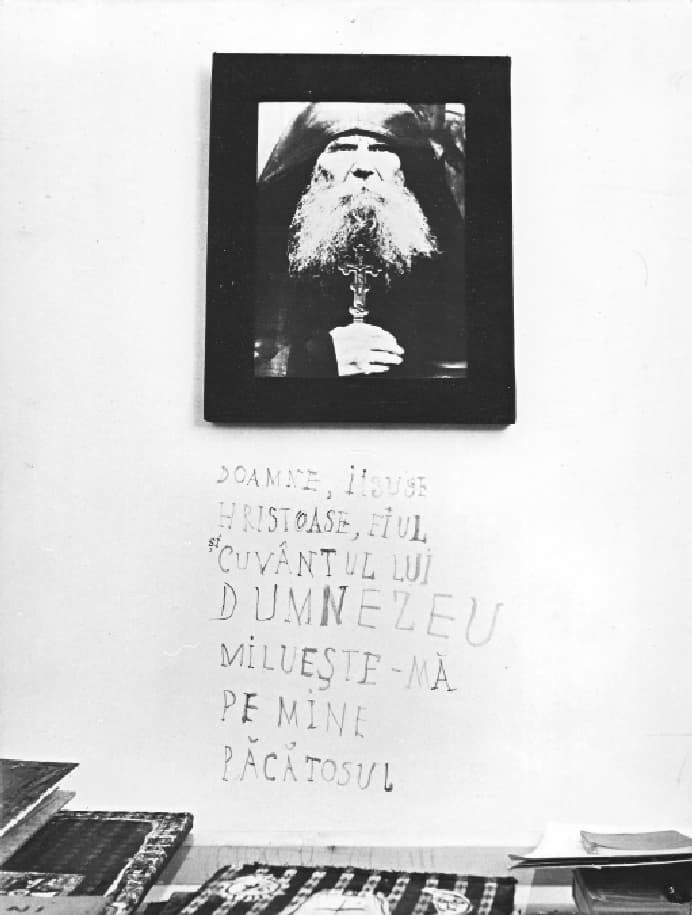 DOAMNE, IISUSE
HRISTOASE, FIUL
ȘI CUVÂNTUL LUI
DUMNEZEU
MILUEȘTE-MĂ
PE MINE
PĂCĂTOSUL